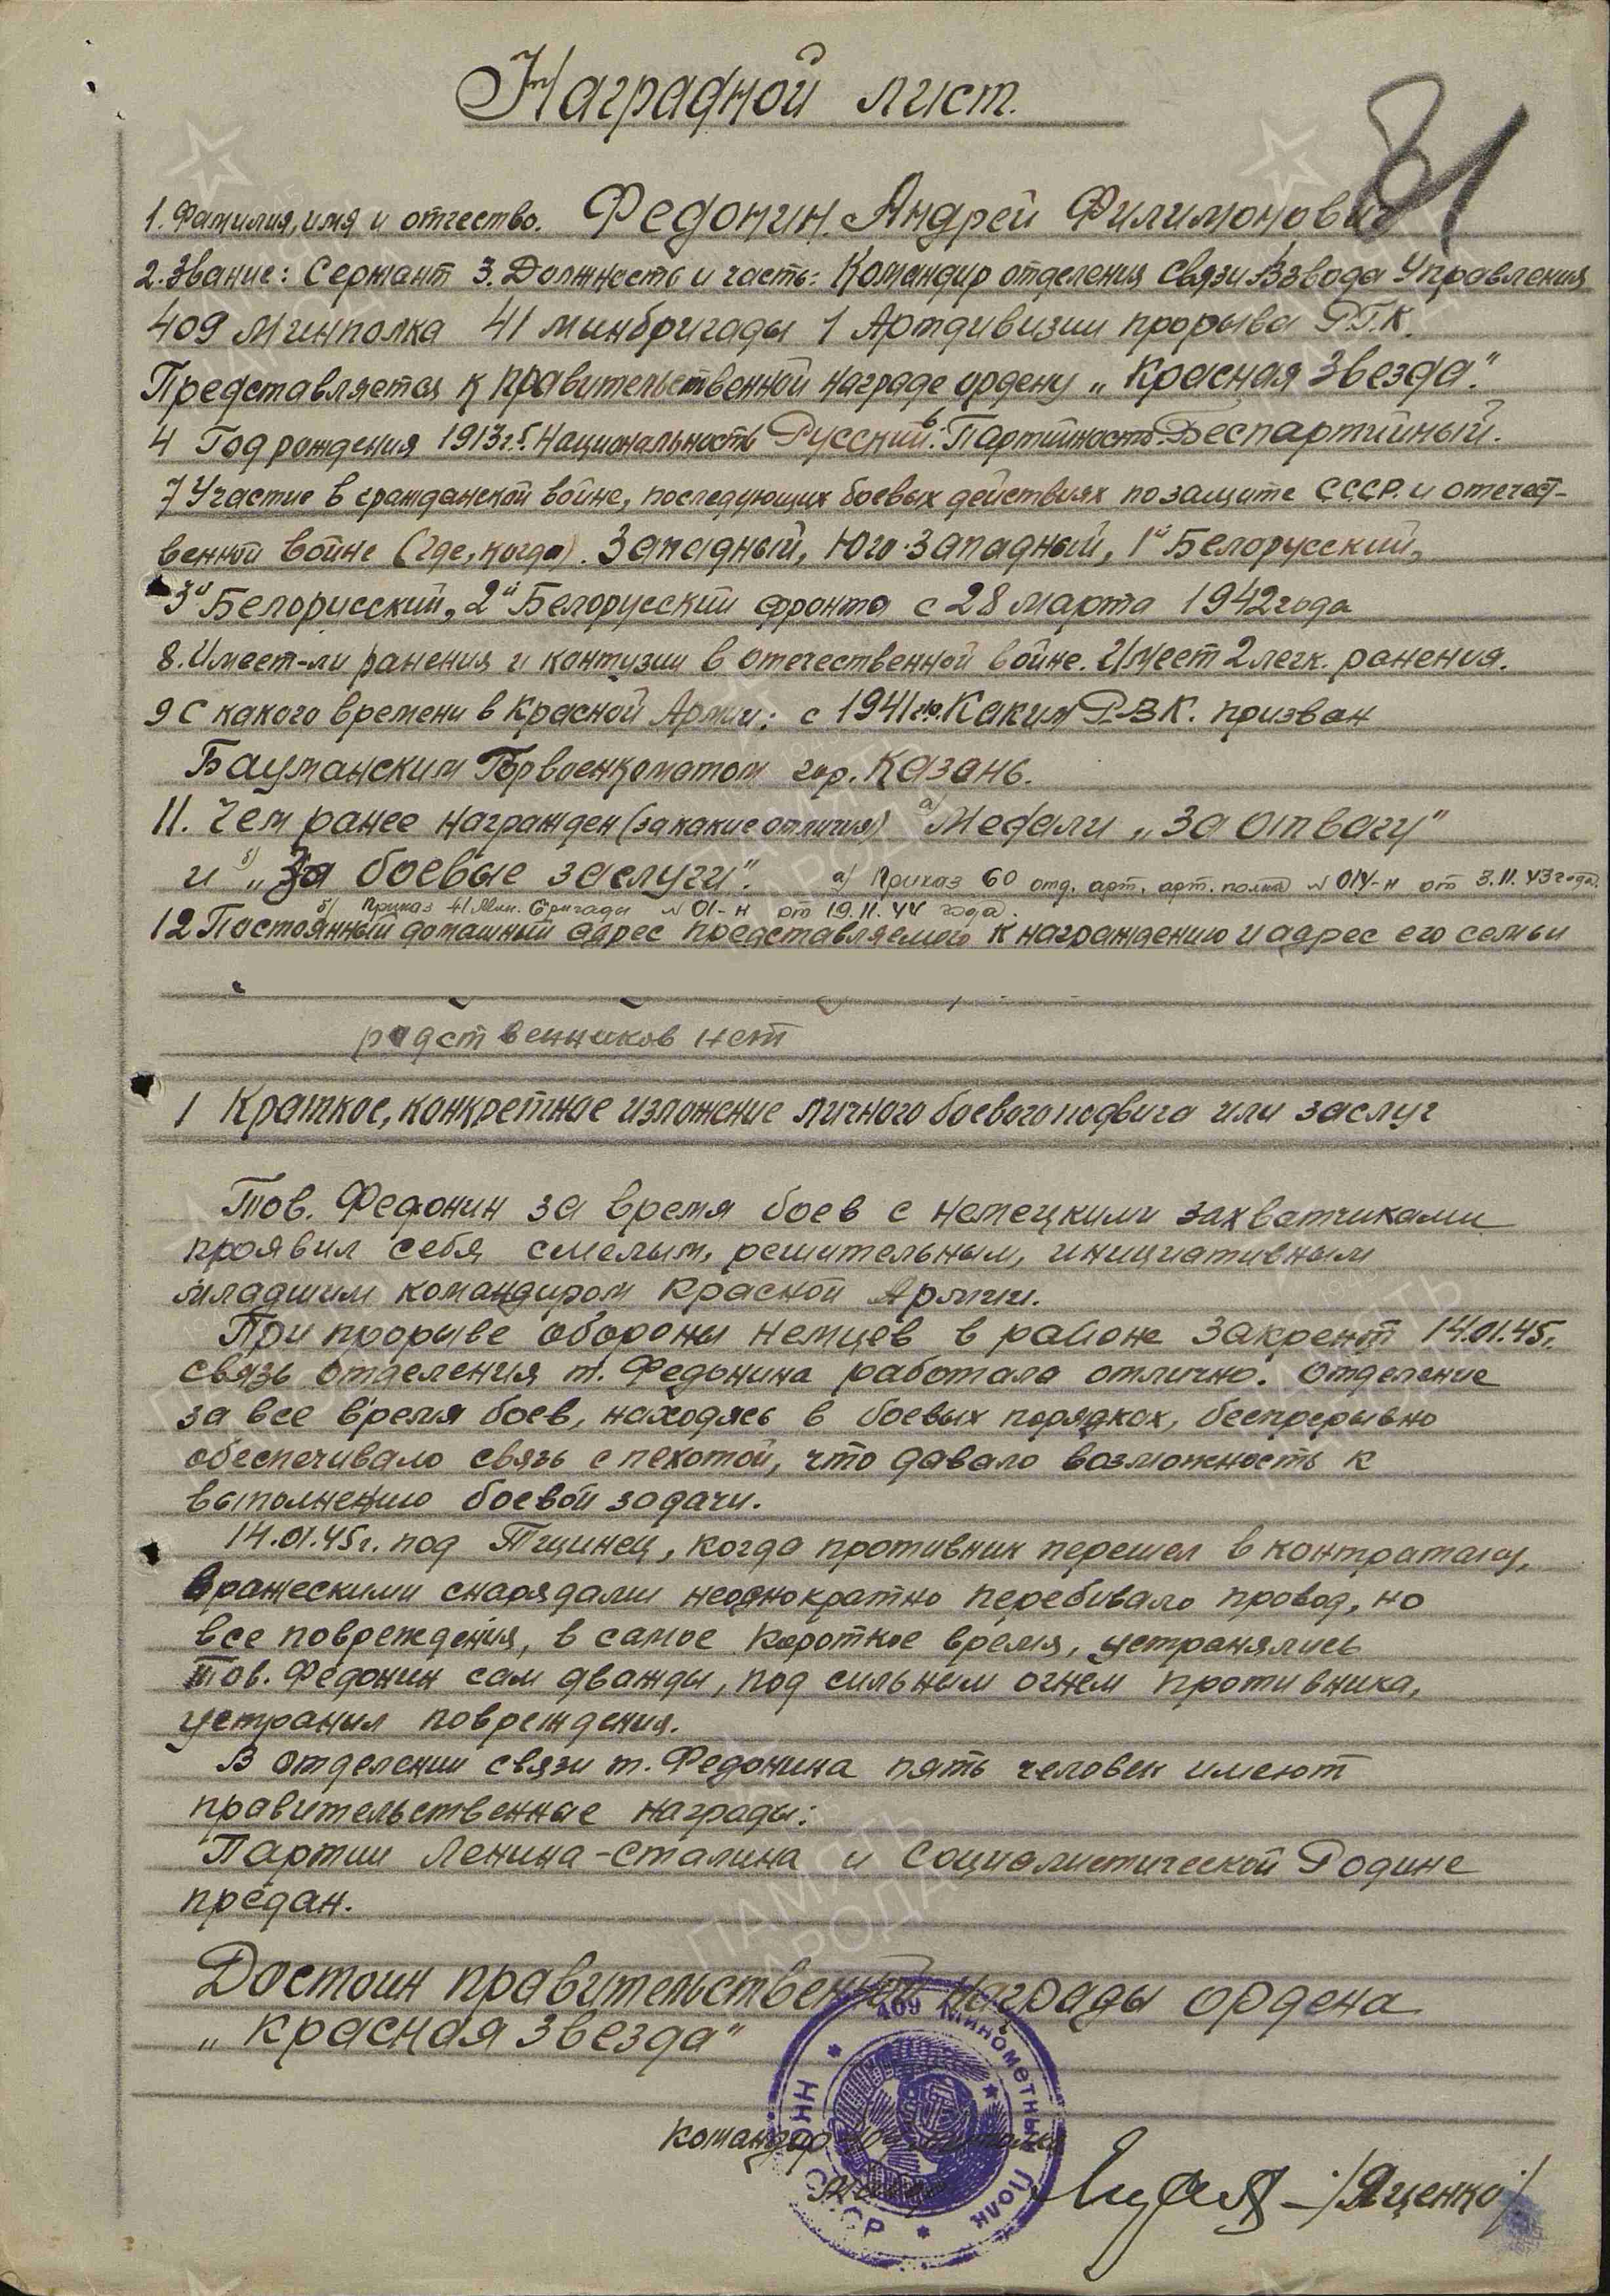 Наградной лист.
81
1. Фамилия, имя и отчество. Федонин Андрей Филимонович
2. Звание: Сержант 3. Должность и часть: Командир отделения связи Взвода Управления
409 Минполка 41 минбригады 1 Артдивизии прорыва Р.Г.К.
Представляется к правительственной награде ордену „Красная Звезда".
4 Год рождения 1913г. 5. Национальность Русский. 6. Партийность Беспартийный.
7 Участие в гражданской войне, последующих боевых действиях по защите С.С.С.Р. и отечест-
венной войне (где, когда). Западный, Юго-Западный, 1й Белорусский,
3й Белорусский, 2й Белорусский фронта с 28 марта 1942 года
8. Имеет-ли ранения и контузии в отечественной войне. Имеет 2 легк. ранения.
9 С какого времени в Красной Армии: с 1941 10. Каким Р.В.К. призван
Бауманским Горвоенкоматом гор. Казань.
11. Чем ранее награжден (за какие отличия) а) Медали „За отвагу"
и б) „За боевые заслуги". а) Приказ 60 отд. арт. арт. полка № 014-н от 3.11.43 года.
б) Приказ 41 Мин. Бригады № 01-н от 19.11.44 года.
12 Постоянный домашный адрес представляемого к награждению и адрес его семьи
родственников нет
1 Краткое, конкретное изложение личного боевого подвига или заслуг
Тов. Федонин за время боев с немецкими захватчиками
проявил себя смелым, решительным, инициативным
младшим командиром Красной Армии.
При прорыве обороны немцев в районе Закрент 14.01.45г.
связь отделения т. Федонина работала отлично. Отделение
за все время боев, находясь в боевых порядках, беспрерывно
обеспечивало связь с пехотой, что давало возможность к
выполнению боевой задачи.
14.01.45г. под Тщинец, когда противник перешел в контратаку,
вражескими снарядами неоднократно перебивало провод, но
все повреждения, в самое короткое время, устранялись
Тов. Федонин сам дважды, под сильным огнем противника,
устранил повреждения.
В отделении связи т. Федонина пять человек имеют
правительственные награды.
Партии Ленина-Сталина и Социалистической Родине
предан.
Достоин правительственной награды ордена
„Красная Звезда"
409 Минометный Полк
СССР
Командир 409 минполка
Майор /Яценко/
ПАМЯТЬ НАРОДА